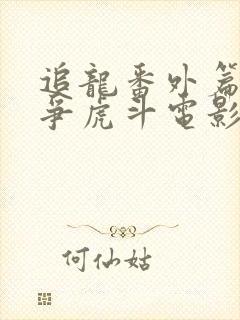 追龍番外篇
爭虎斗電影
何仙姑